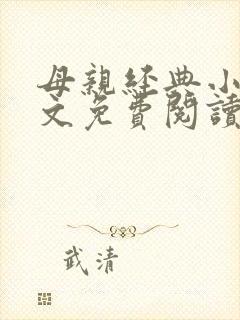 母親經典小
文免費閱讀
武清